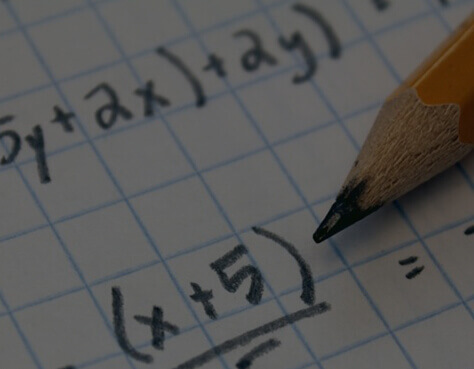 5y+2x)+2y)
(x+5) =